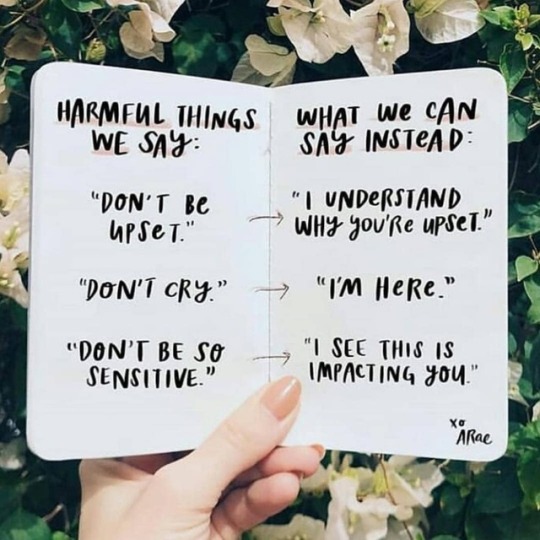 HARMFUL THINGS
WE SAY:
"DON'T BE
UPSET."
"DON'T CRY."
"DON'T BE SO
SENSITIVE."
WHAT WE CAN
SAY INSTEAD:
"I UNDERSTAND
WHY YOU'RE UPSET."
"I'M HERE."
"I SEE THIS IS
IMPACTING YOU."
xo
ARae